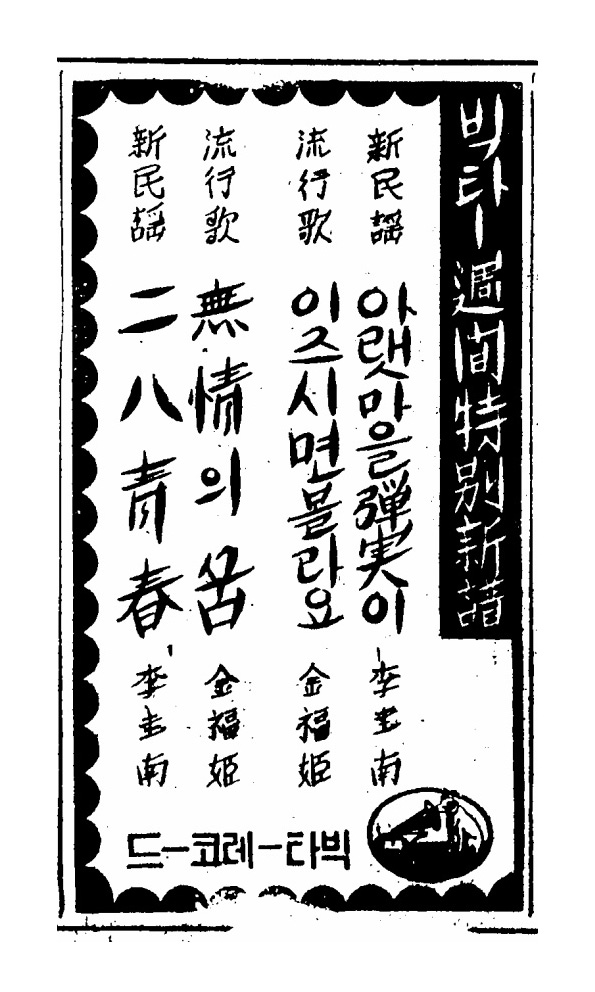 빅타ー 週間特別新譜
新民謠 아랫마을弾実이 李圭南
流行歌 이즈시면몰라요 金福姬
流行歌 無情의ᄭᅮᆷ 金福姬
新民謠 二八青春 李圭南
빅타ー레코ー드